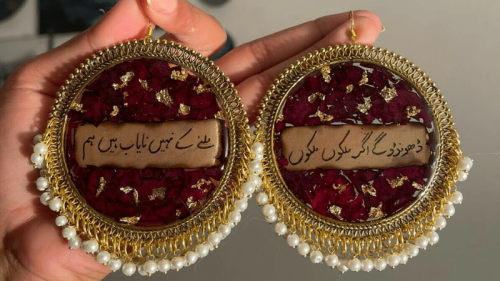 ملنے کے نہیں نایاب ہیں ہم
ڈھونڈوگے اگر ملکوں ملکوں